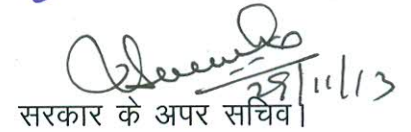 29/11/13
सरकार के अपर सचिव।